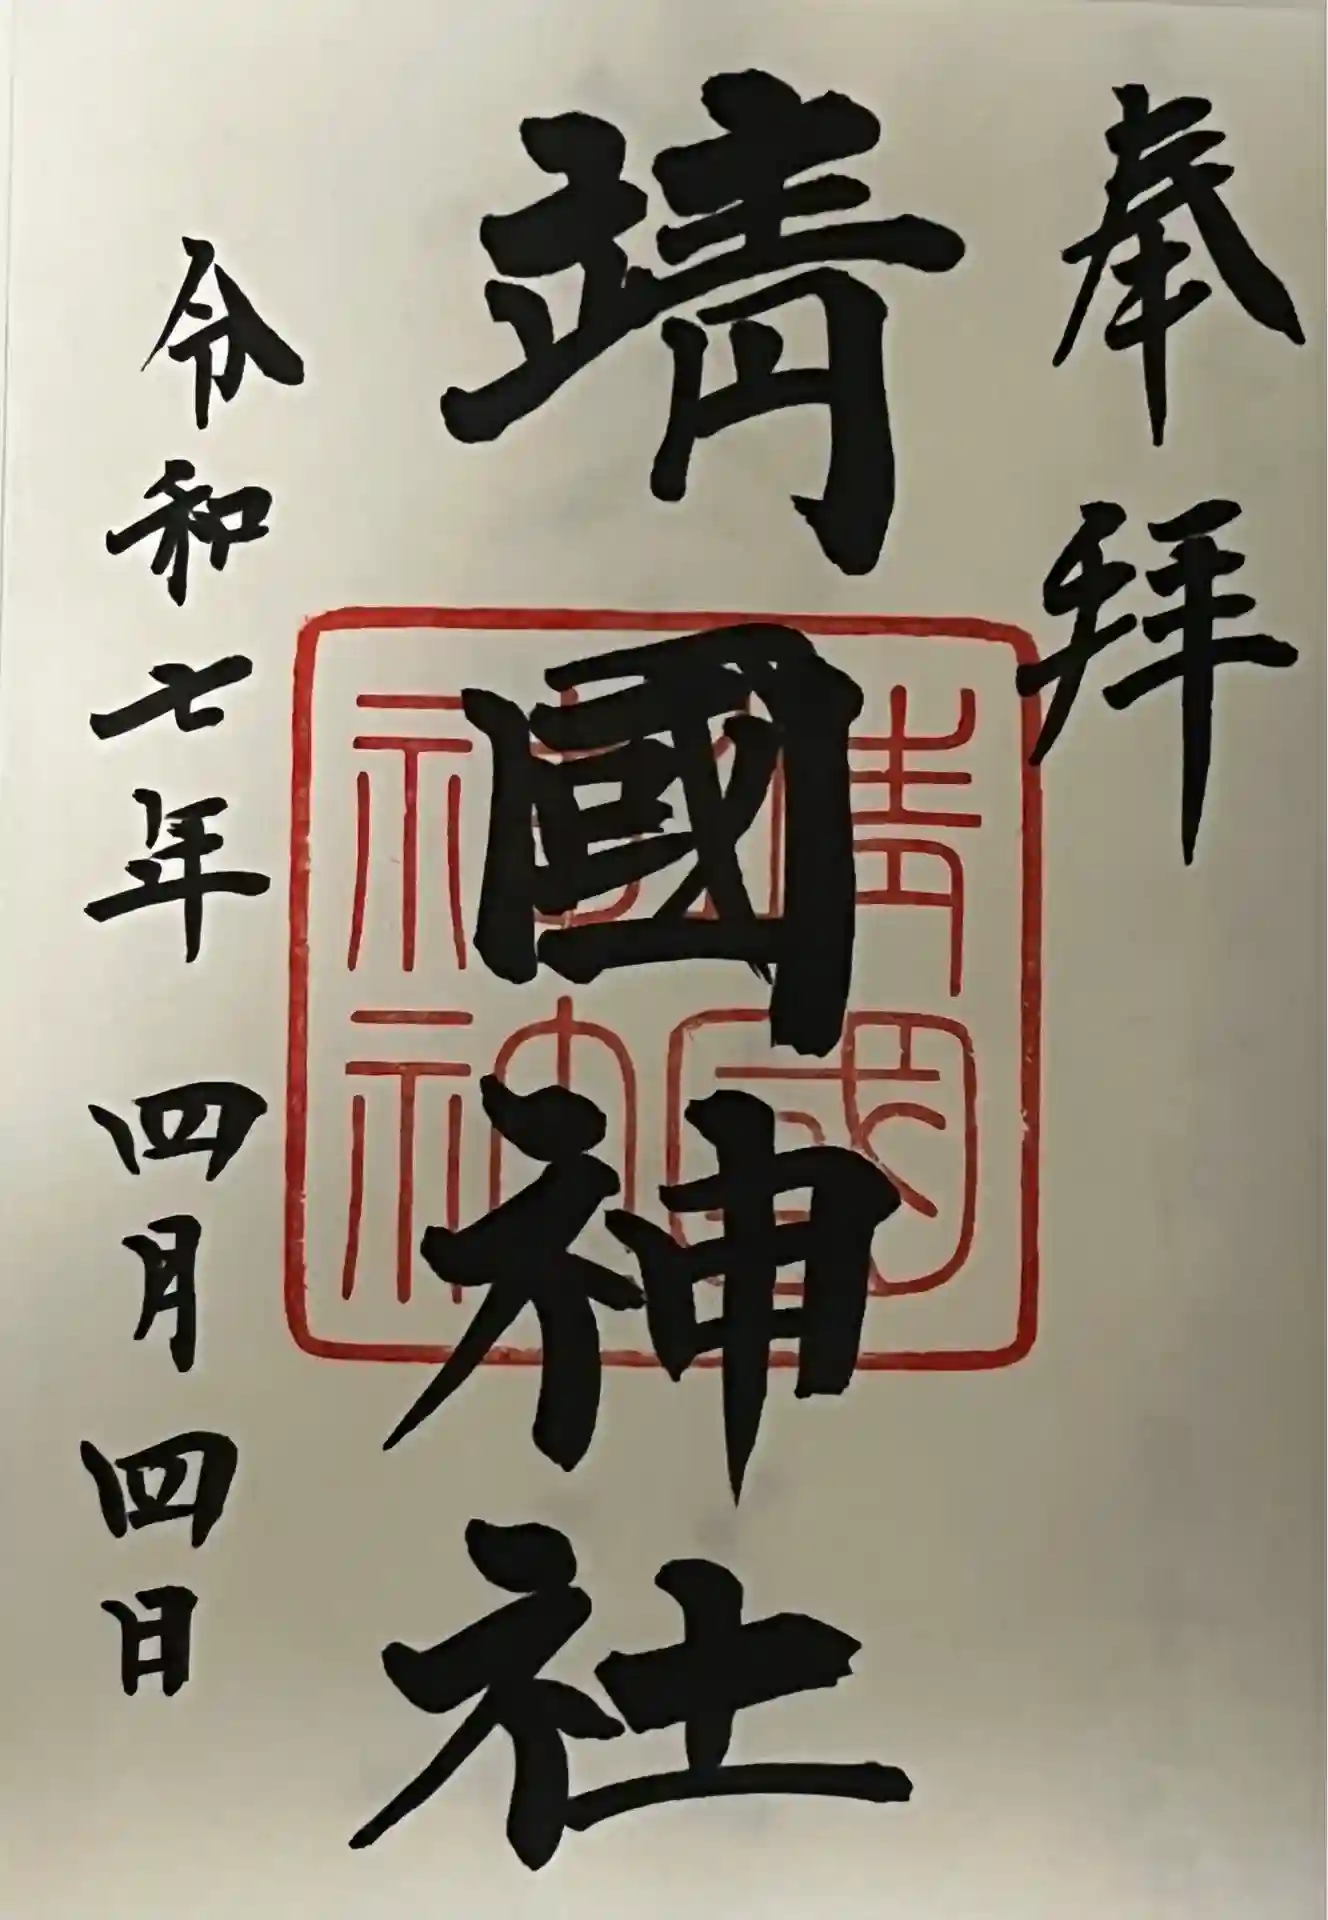 奉拝
靖國神社
令和七年四月四日
靖國
神社